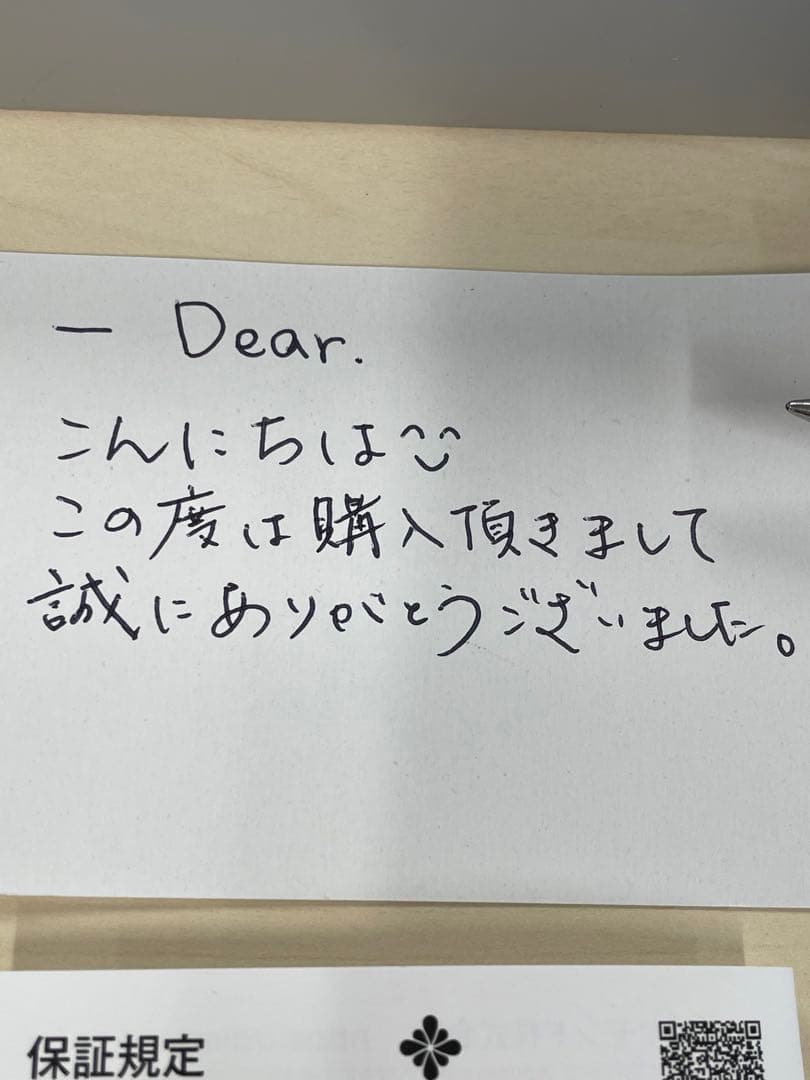 一 Dear.
こんにちは
この度は購入頂きまして
誠にありがとうございました。
保証規定